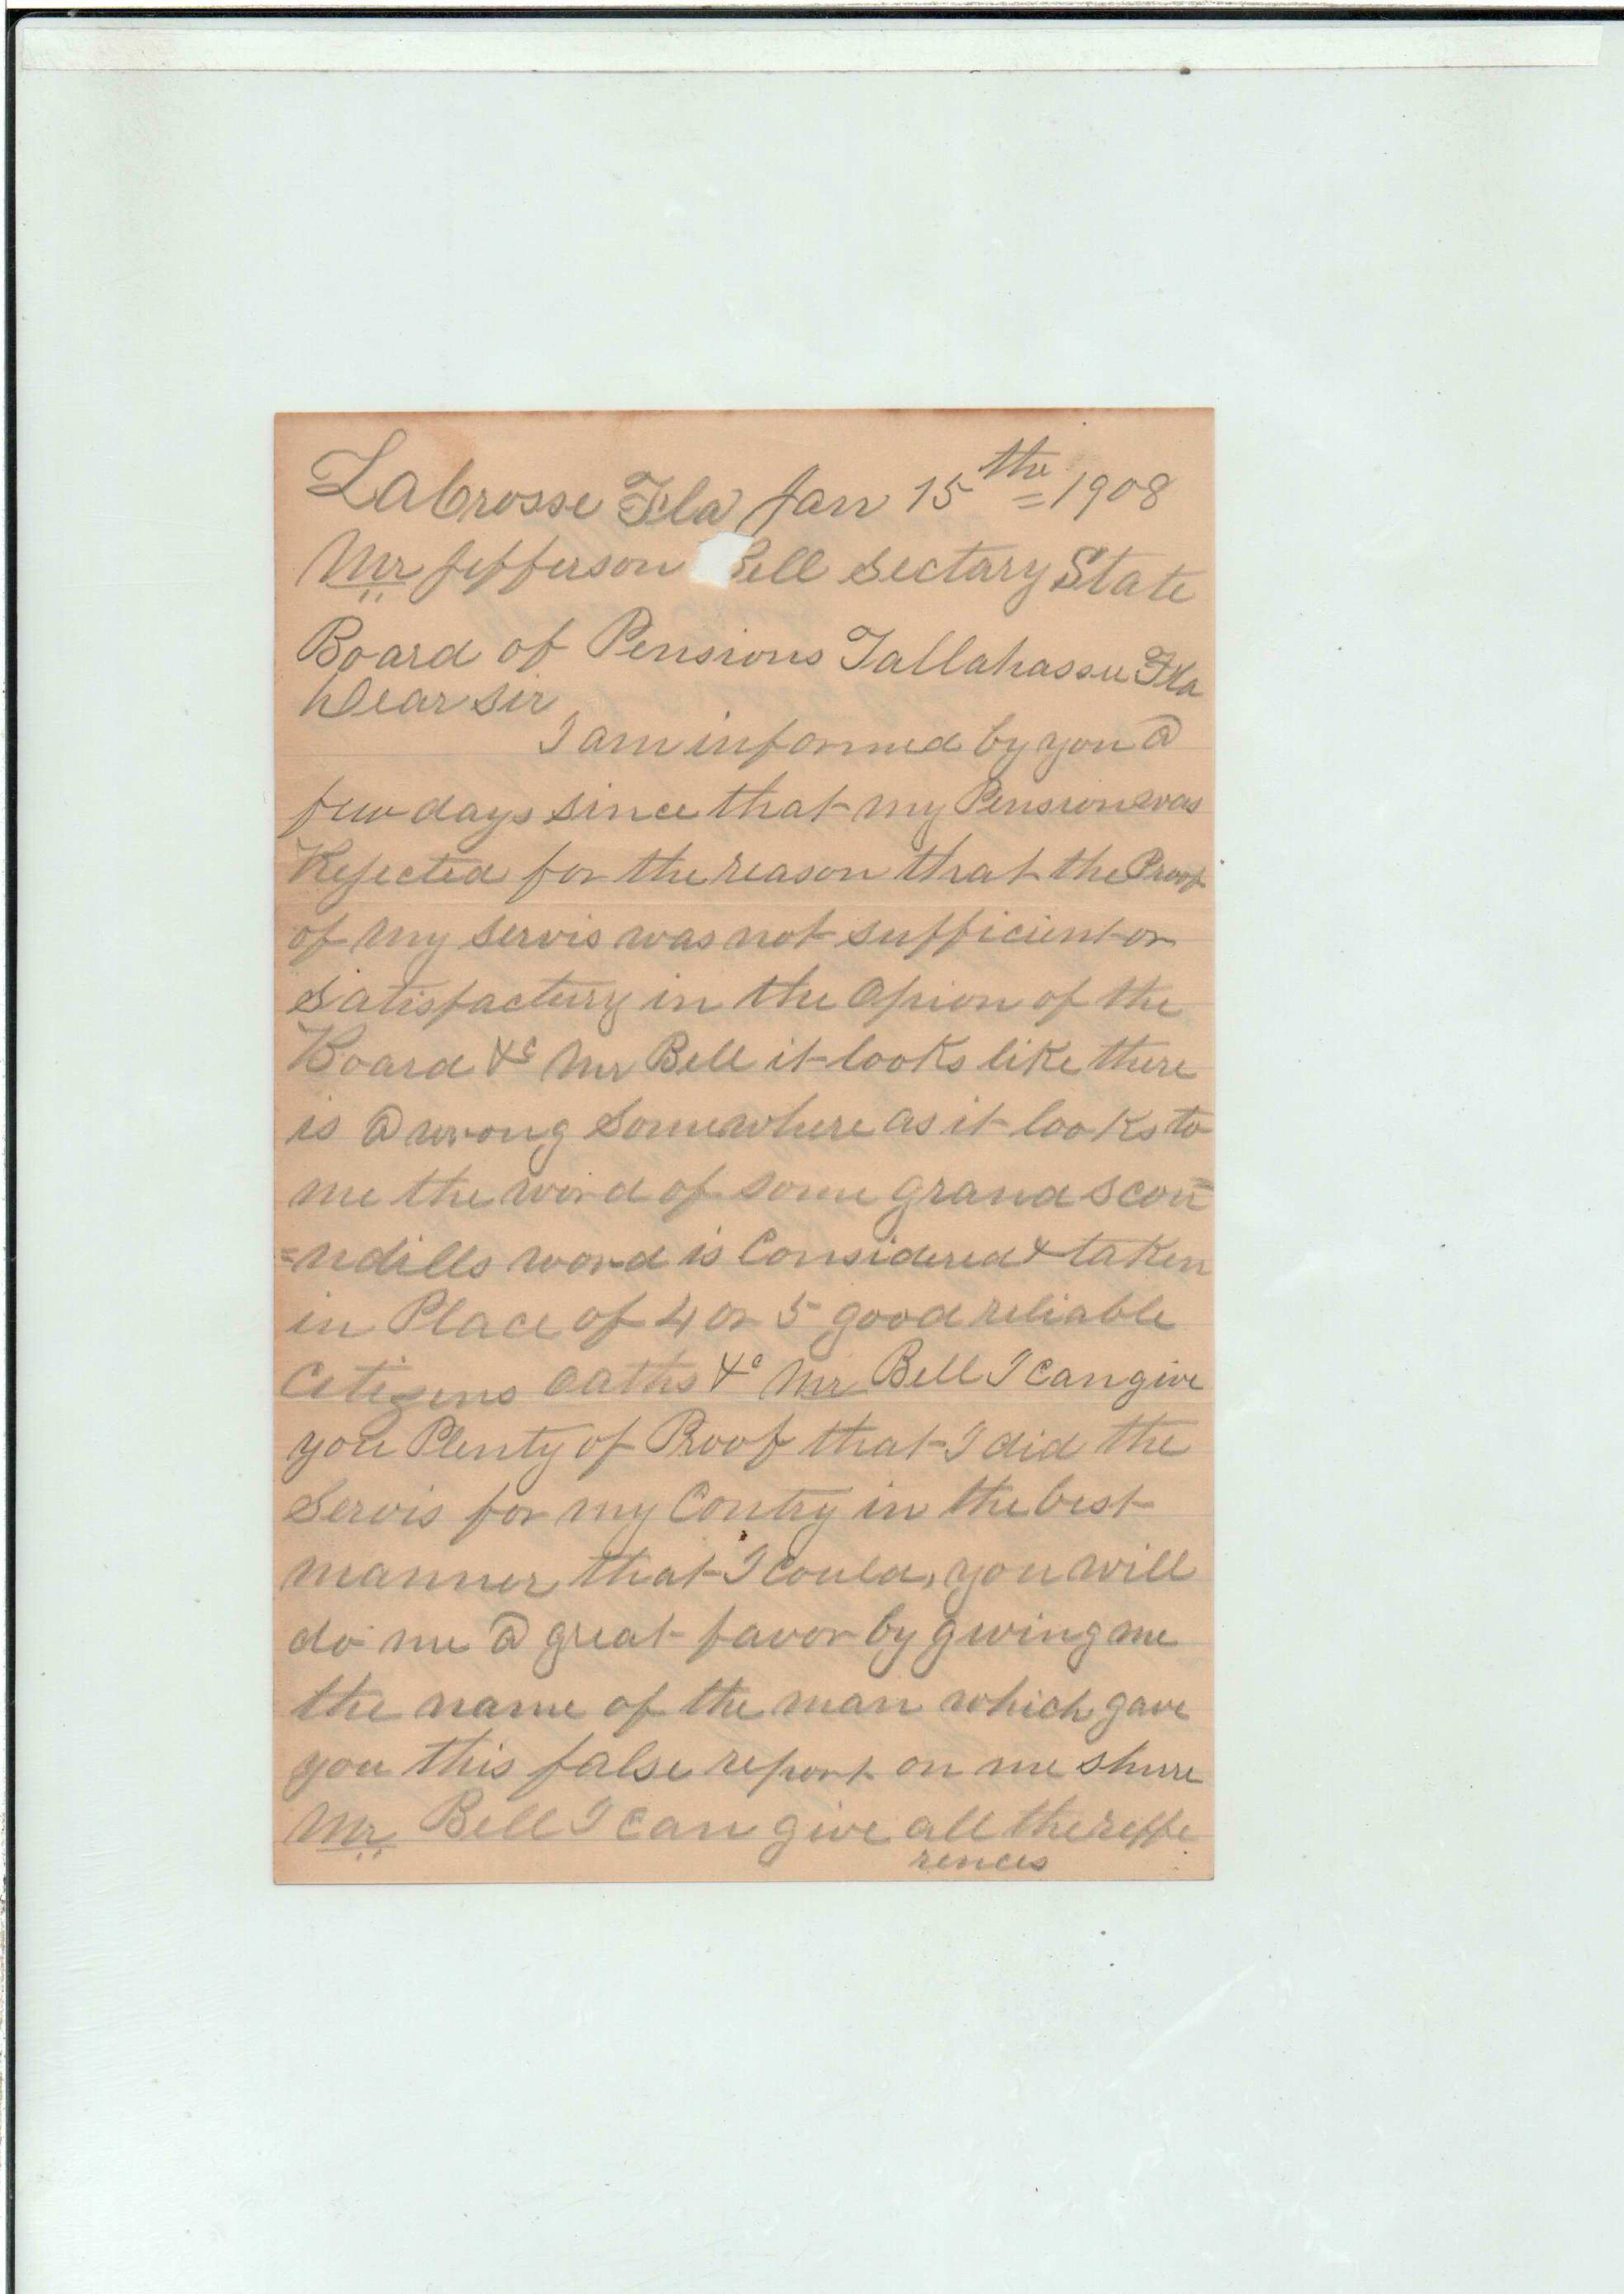 LaCrosse Fla Jan 15th = 1908
Mr Jefferson Bell Sectary State
Board of Pensions Tallahassee Fla
Dear Sir
I am informed by you @
few days since that my Pension was
Rejected for the reason that the Proof
of my servis was not sufficient or
Satisfactury in the Opion of the
Board &c Mr Bell it looks like there
is @ wrong Somewhere as it looks to
me the word of some grand scou=
=ndills word is Considered & taken
in Place of 4 or 5 good reliable
Citizens Oaths &c Mr Bell I can give
you Plenty of Proof that I did the
Servis for my Contry in the best
manner that I could, you will
do me @ great favor by giving me
the name of the man which gave
you this false report on me shure
Mr Bell I can give all the reffe
rences